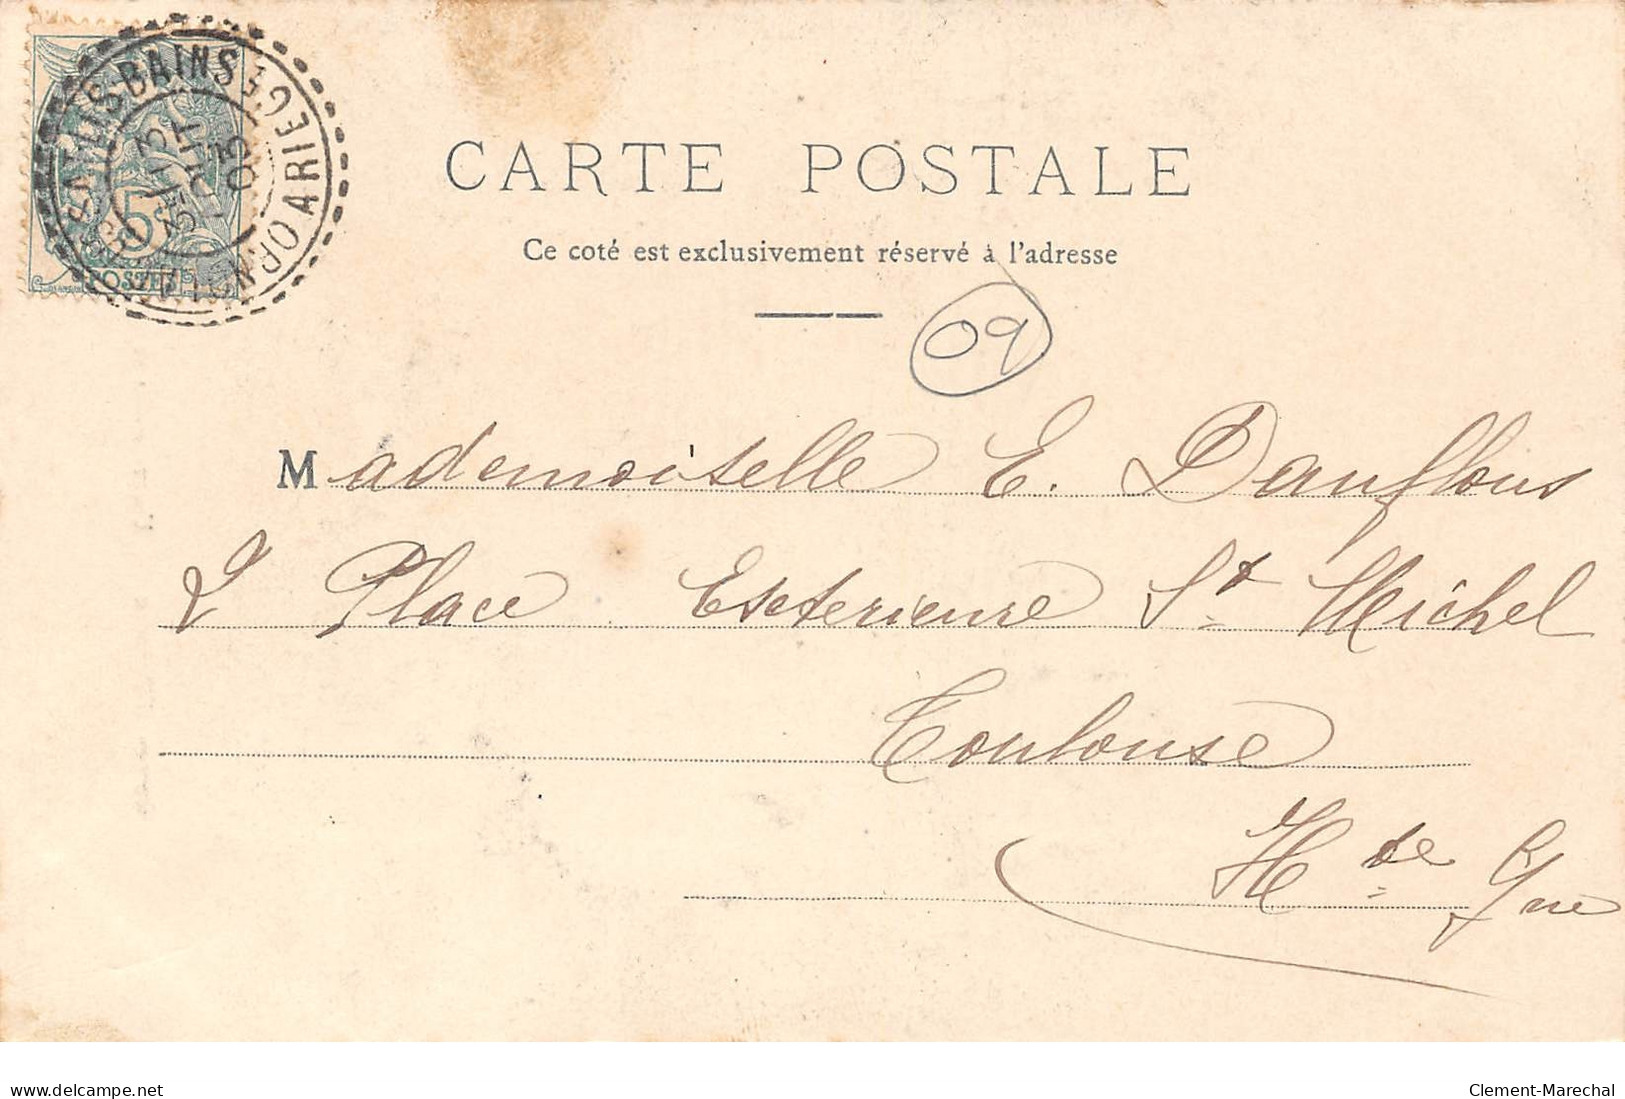 BAINS
ARIEGE
5
POSTES
03
CARTE POSTALE
Ce coté est exclusivement réservé à l'adresse
09
Mademoiselle E. Dauflous
2 Place Exterieure St Michel
Toulouse
Hte Gne
delcampe.net
Clement-Marechal